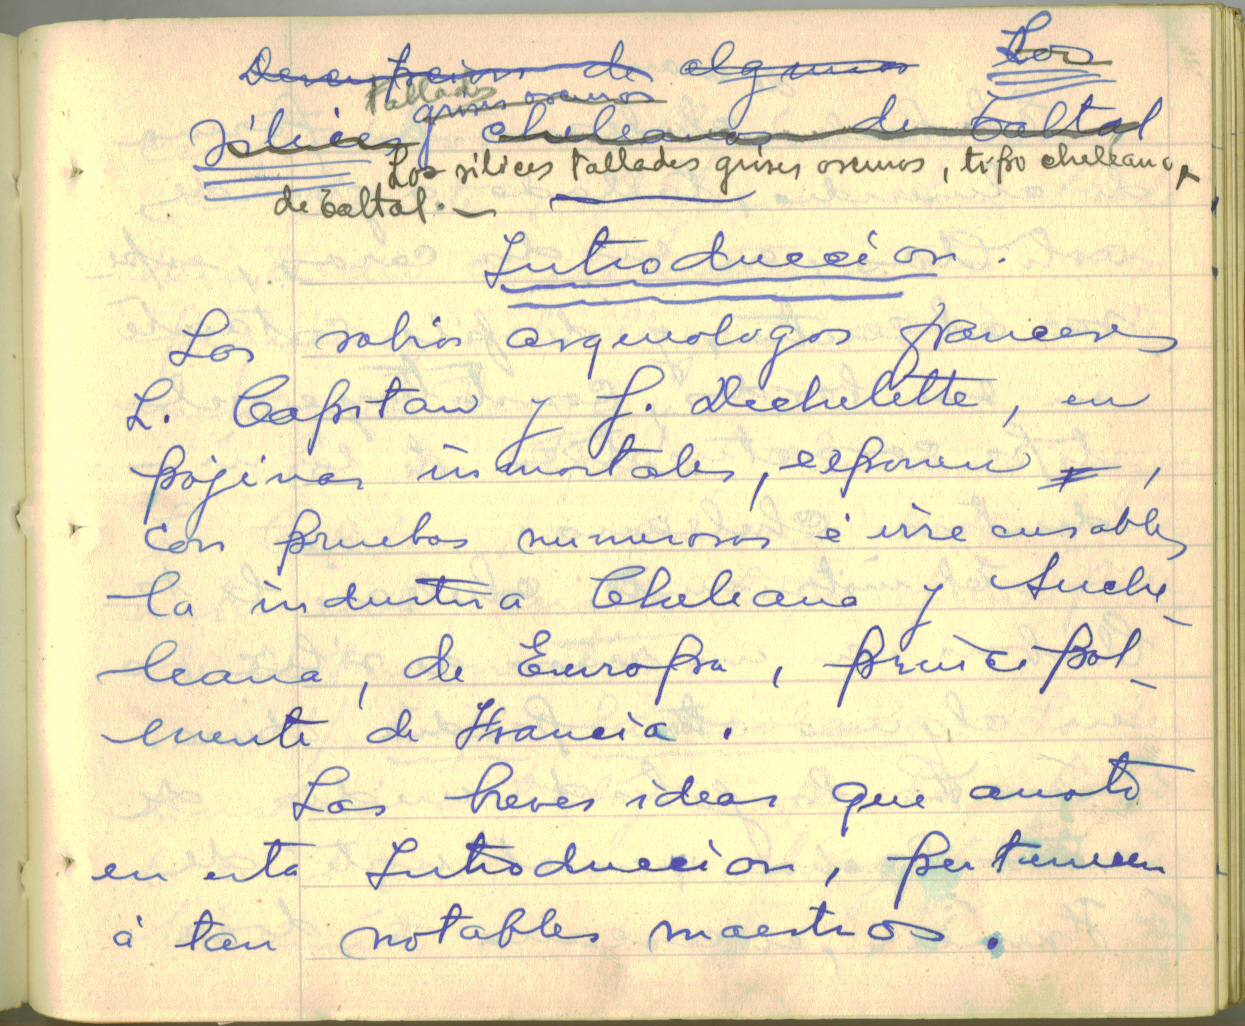 Descripcion de algunos Los
Tallados
grises oscuros
Sílices y cheleanos de Taltal
Los sílices tallados grises oscuros, tipo cheleano,
de Taltal.
Introduccion.
Los sabios arqueologos franceses
L. Capitan y J. Dechelette, en
pájinas inmortales, esponen,
con pruebas numerosas é irrecusables
la industria Cheleana y Acheu-
leana, de Europa, principal-
mente de Francia.
Las breves ideas que anoto
en esta Introduccion, pertenecen
á tan notables maestros.